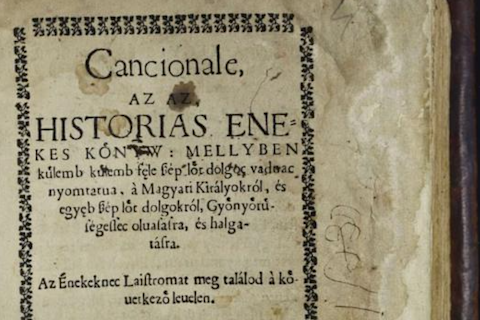 Cancionale,
AZ AZ,
HISTORIAS ENE-
KES KŐNYW: MELLYBEN
kűlemb kűlemb féle ßép lőt dolgoc vadnac
nyomtatua, à Magyari Királyokról, és
egyéb ßép lőt dolgokról, Győnyőrű-
ségessec oluasásra, és halga-
tásra.
Az Énekeknec Laistromat meg találod à kő-
uetkező leuelen.